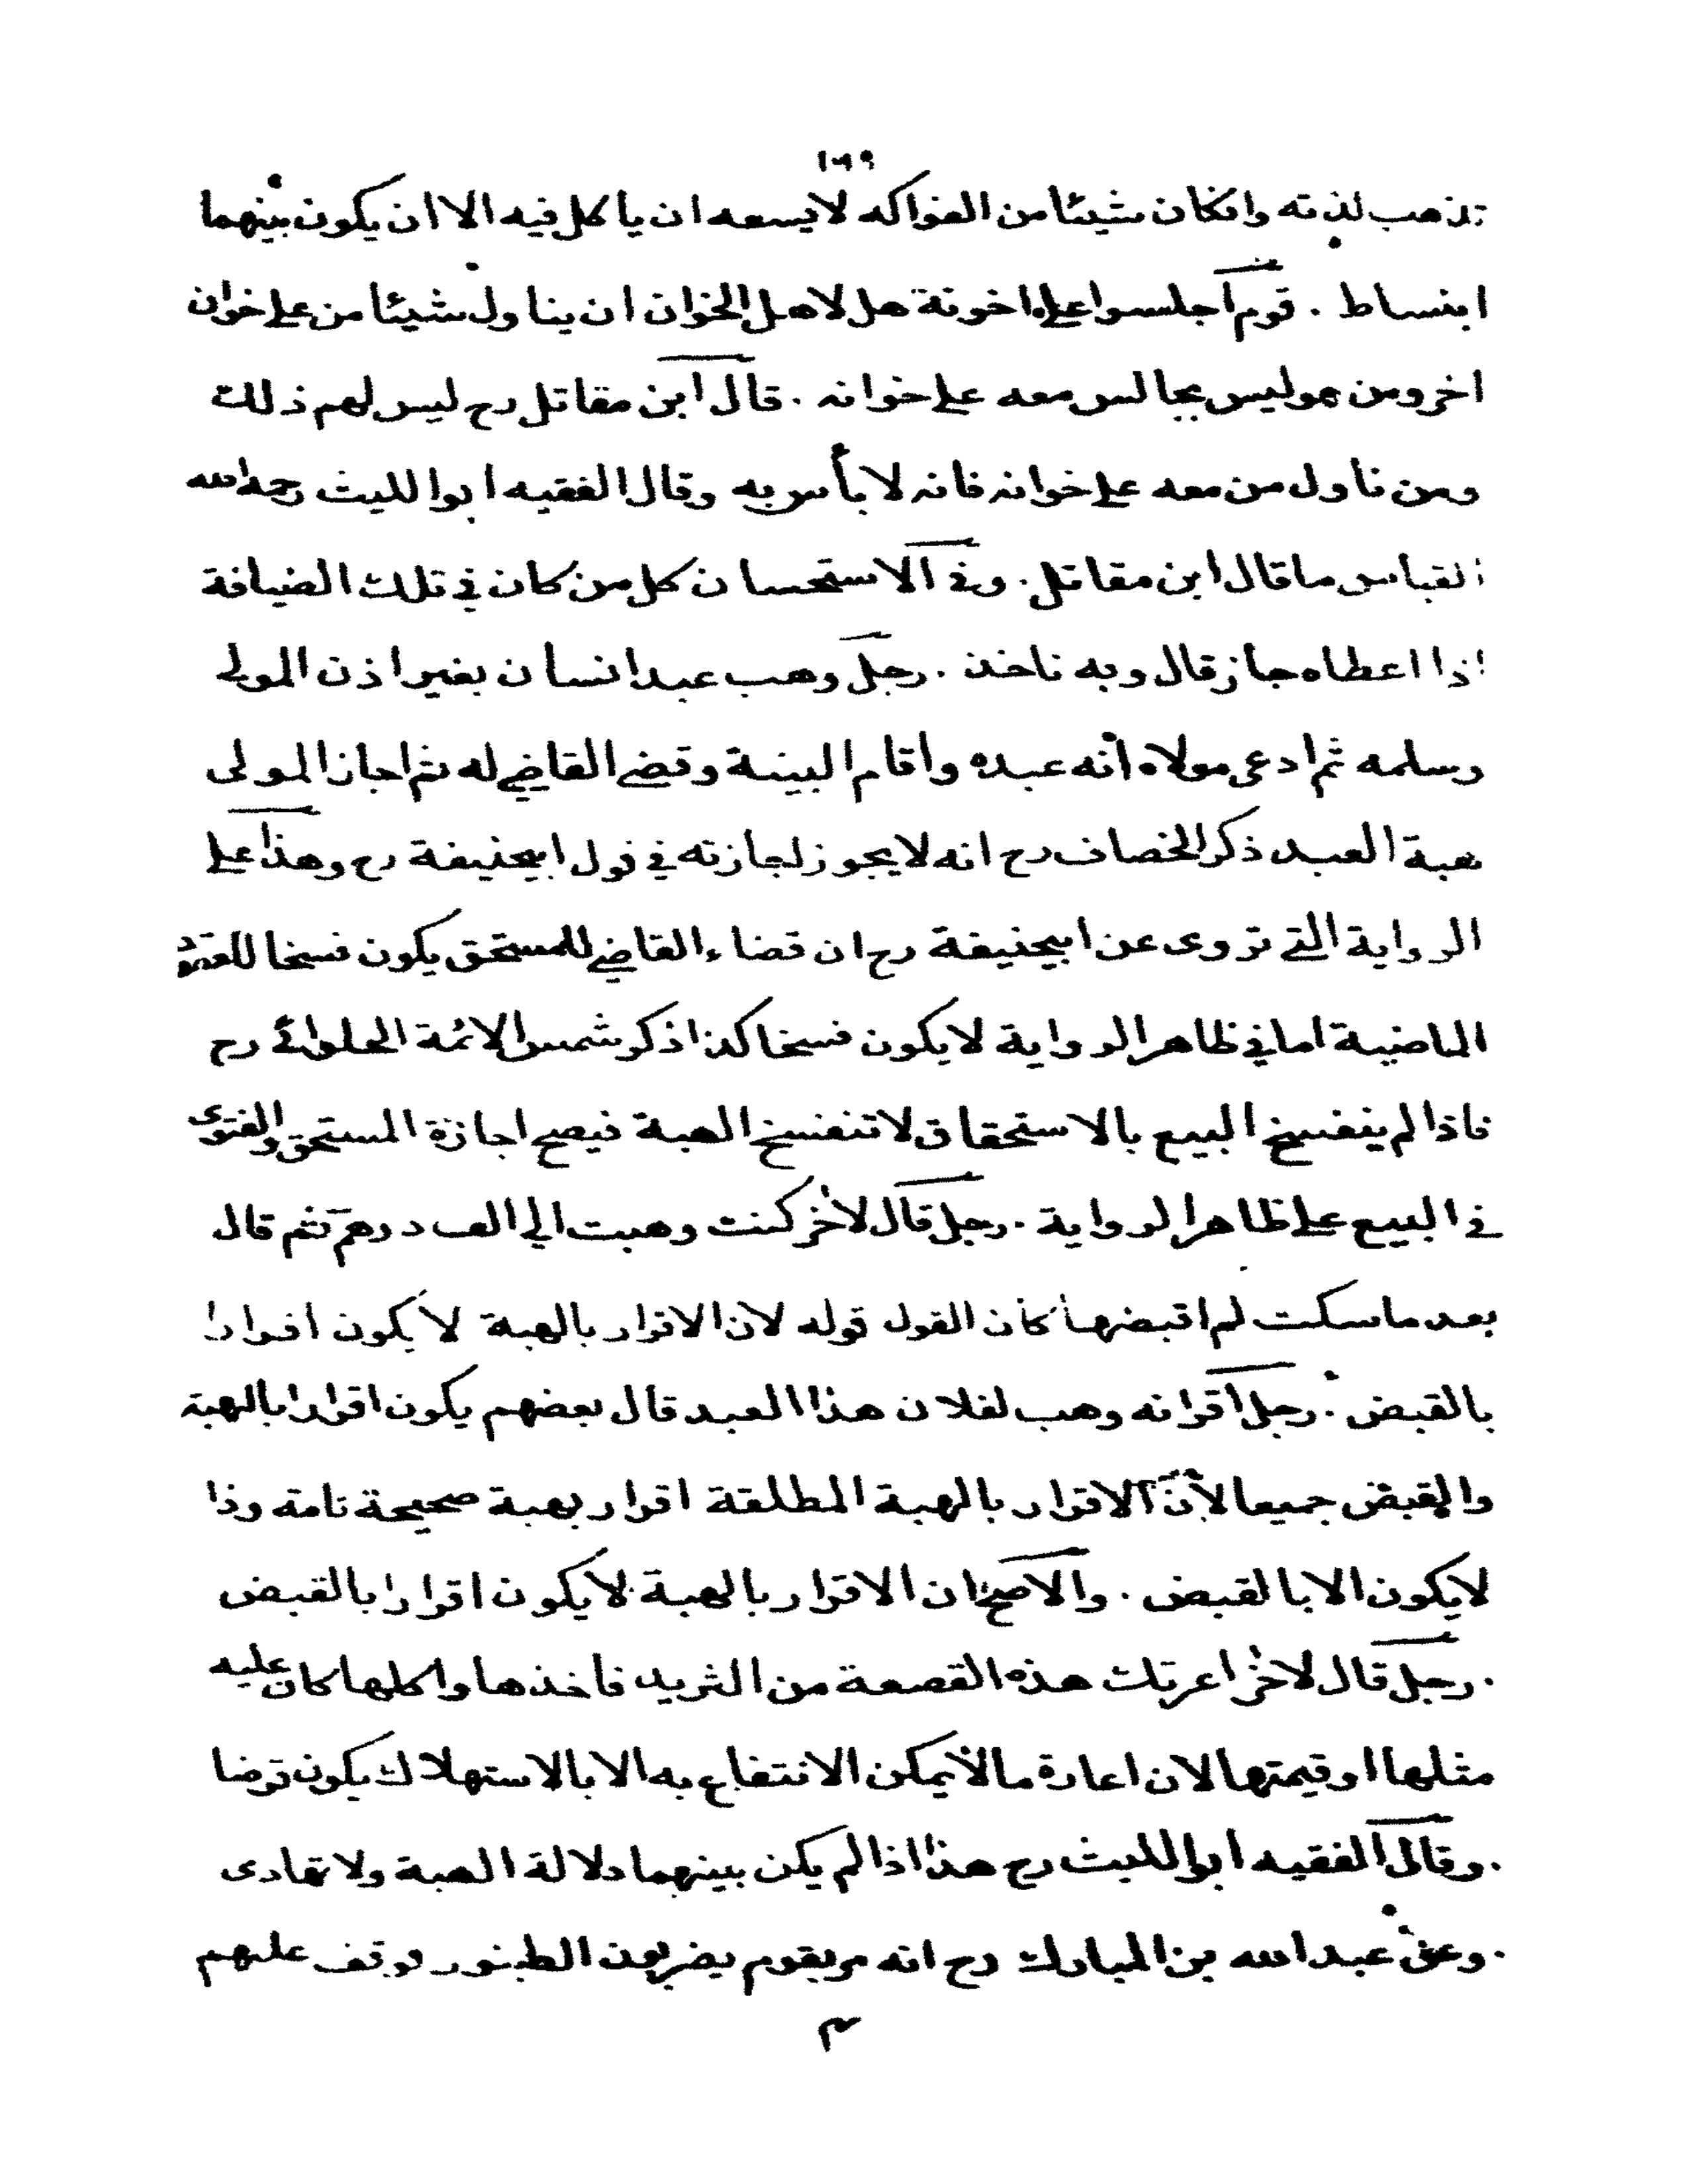 ١٦٩
تذهب لذته وانكان شيئا من الفواكه لايسعه ان ياكل فيه الا ان يكون بينهما
ابنساط . قوم اجلسوا على اخونة هل لاهل الخوان ان يناول شيئا من على خوان
اخر ومن هو ليس بجالس معه على خوانه . قال ابن مقاتل رح ليس لهم ذلك
ومن ناول من معه على خوانه فانه لا بأس به وقال الفقيه ابو الليث رحمه الله
القياس ما قال ابن مقاتل . وفي الاستحسان كل من كان في تلك الضيافة
اذا اعطاه جاز قال وبه ناخذ . رجل وهب عبد انسان بغير اذن المولى
وسلمه ثم ادعى مولاه أنه عبده وأقام البينة وقضى القاضي له ثم اجاز المولى
هبة العبد ذكر الخصاف رح انه لا يجوز اجازته في قول ابيحنيفة رح وهذا على
الرواية التي تروى عن ابيحنيفة رح ان قضاء القاضي للمستحق يكون فسخا للعقود
الماضية اما في ظاهر الرواية لا يكون فسخا كذا ذكر شمس الائمة الحلوائي رح
فاذا لم ينفسخ البيع بالاستحقاق لا تنفسخ الهبة فيصح اجازة المستحق والفتوى
في البيع على ظاهر الرواية . رجل قال لاخر كنت وهبت الي الف درهم ثم قال
بعد ما سكت لم اقبضها كان القول قوله لان الاقرار بالهبة لا يكون اقرارا
بالقبض . رجل اقر انه وهب لفلان هذا العبد قال بعضهم يكون اقرارا بالهبة
والقبض جميعا لأن الاقرار بالهبة المطلقة اقرار بهبة صحيحة تامة وذا
لا يكون الا بالقبض . والاصح ان الاقرار بالهبة لا يكون اقرارا بالقبض
. رجل قال لاخر اعرتك هذه القصعة من الثريد فاخذها واكلها كان عليه
مثلها او قيمتها لان اعارة ما لا يمكن الانتفاع به الا بالاستهلاك يكون قرضا
. وقال الفقيه ابو الليث رح هذا اذا لم يكن بينهما دلالة الهبة ولا تهادى
. وعن عبد الله بن المبارك رح انه مر بقوم يضربون الطنبور فوقف عليهم